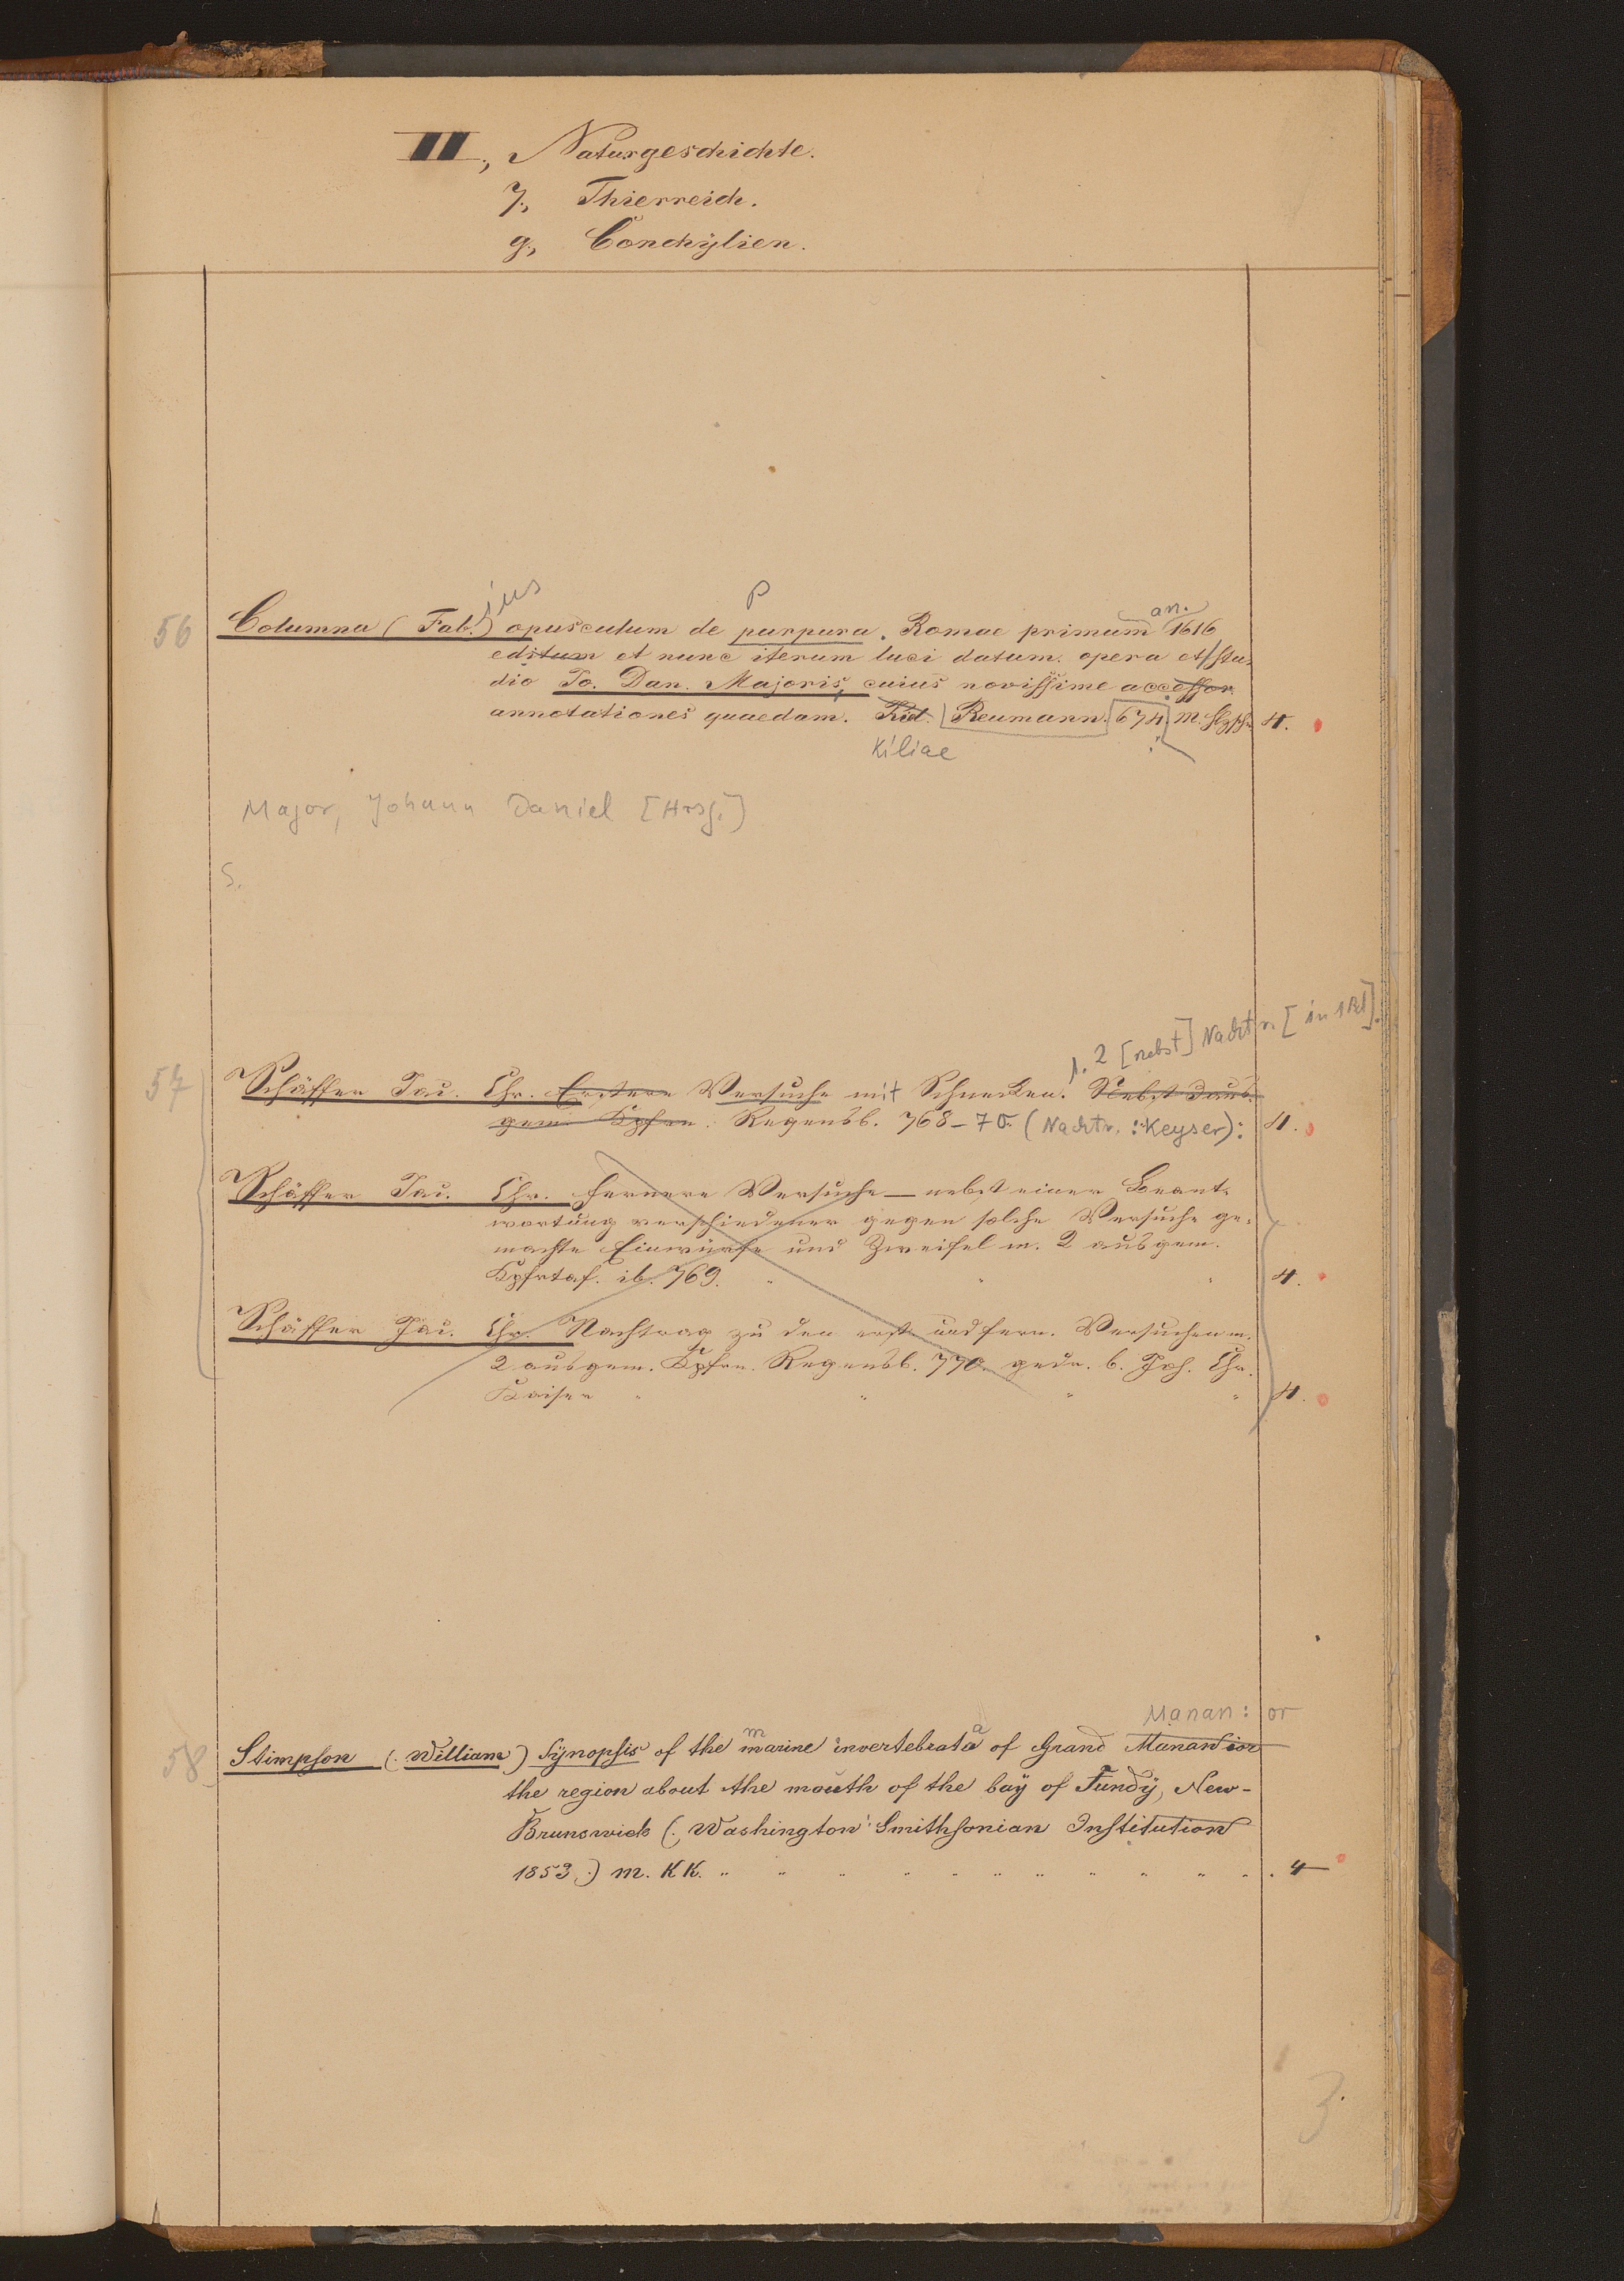 III., Naturgeschichte.
7., Thierreich.
g., Conchÿlien.
ius p an.
56 Columna (Fab.) opusculum de purpura. Romae primum 1616
editum et nunc iterum luci datum opera et stu-
dio Jo. Dan. Majoris, cuius novissime accessor
annotationes quaedam. Kiel. Reumann. 674. m. Hzsch. 4.
Kiliae
Major, Johann Daniel [Hrsg.]
S.
1. 2 [nebst] Nachtr. [in 1 Bd].
57 Schäffer Jac. Chr. Erstere Versuche mit Schnecken. Nebst 3 aus-
gem. Kpfrn. Regensb. 768-70. (Nachtr. : Keyser): 4.
Schäffer Jac. Chr. Fernere Versuche — nebst einer Beant-
wortung verschiedener gegen solche Versuche ge-
machte Einwürfe und Zweifel m. 2 ausgem.
Kpfrtaf. ib. 769. " " " 4.
Schäffer Jac. Chr. Nachtrag zu den erst. und fern. Versuchen m.
2 ausgem. Kpfrn. Regensb. 770. gedr. b. Joh. Chr.
Kaiser " " " " 4.
Manan: or
m a
58. Stimpson (William) Sÿnopsis of the marine invertebrata of Grand Manan ior
the region about the mouth of the baÿ of Fundÿ, New-
Brunswick (Washington: Smithsonian Institution
1853.) m. KK. " " " " " " " " " " " 4
3.